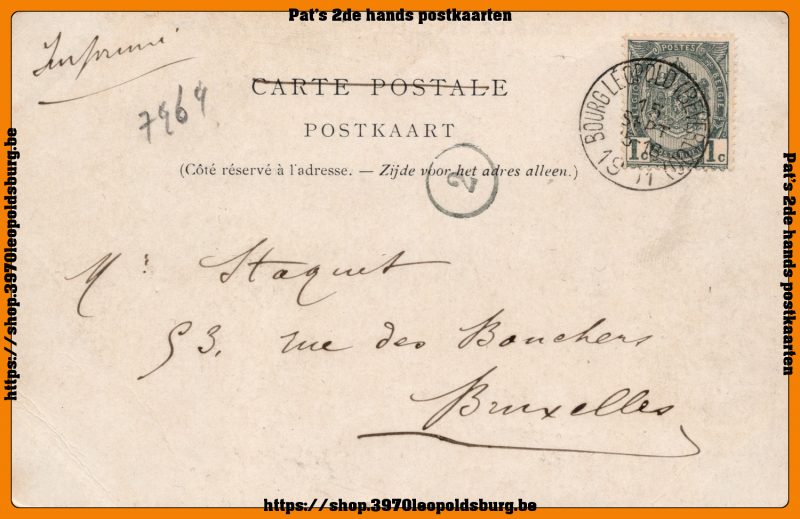 Pat's 2de hands postkaarten
Imprimé
7464
CARTE POSTALE
POSTKAART
(Côté réservé à l'adresse. — Zijde voor het adres alleen.)
2
POSTES
BELGIQUE
1c 1c
BOURG LÉOPOLD (BEVERLOO)
15
SEPT
1911
Mr. Staquet
53, rue des Bouchers
Bruxelles
https://shop.3970leopoldsburg.be
Pat's 2de hands postkaarten
https://shop.3970leopoldsburg.be